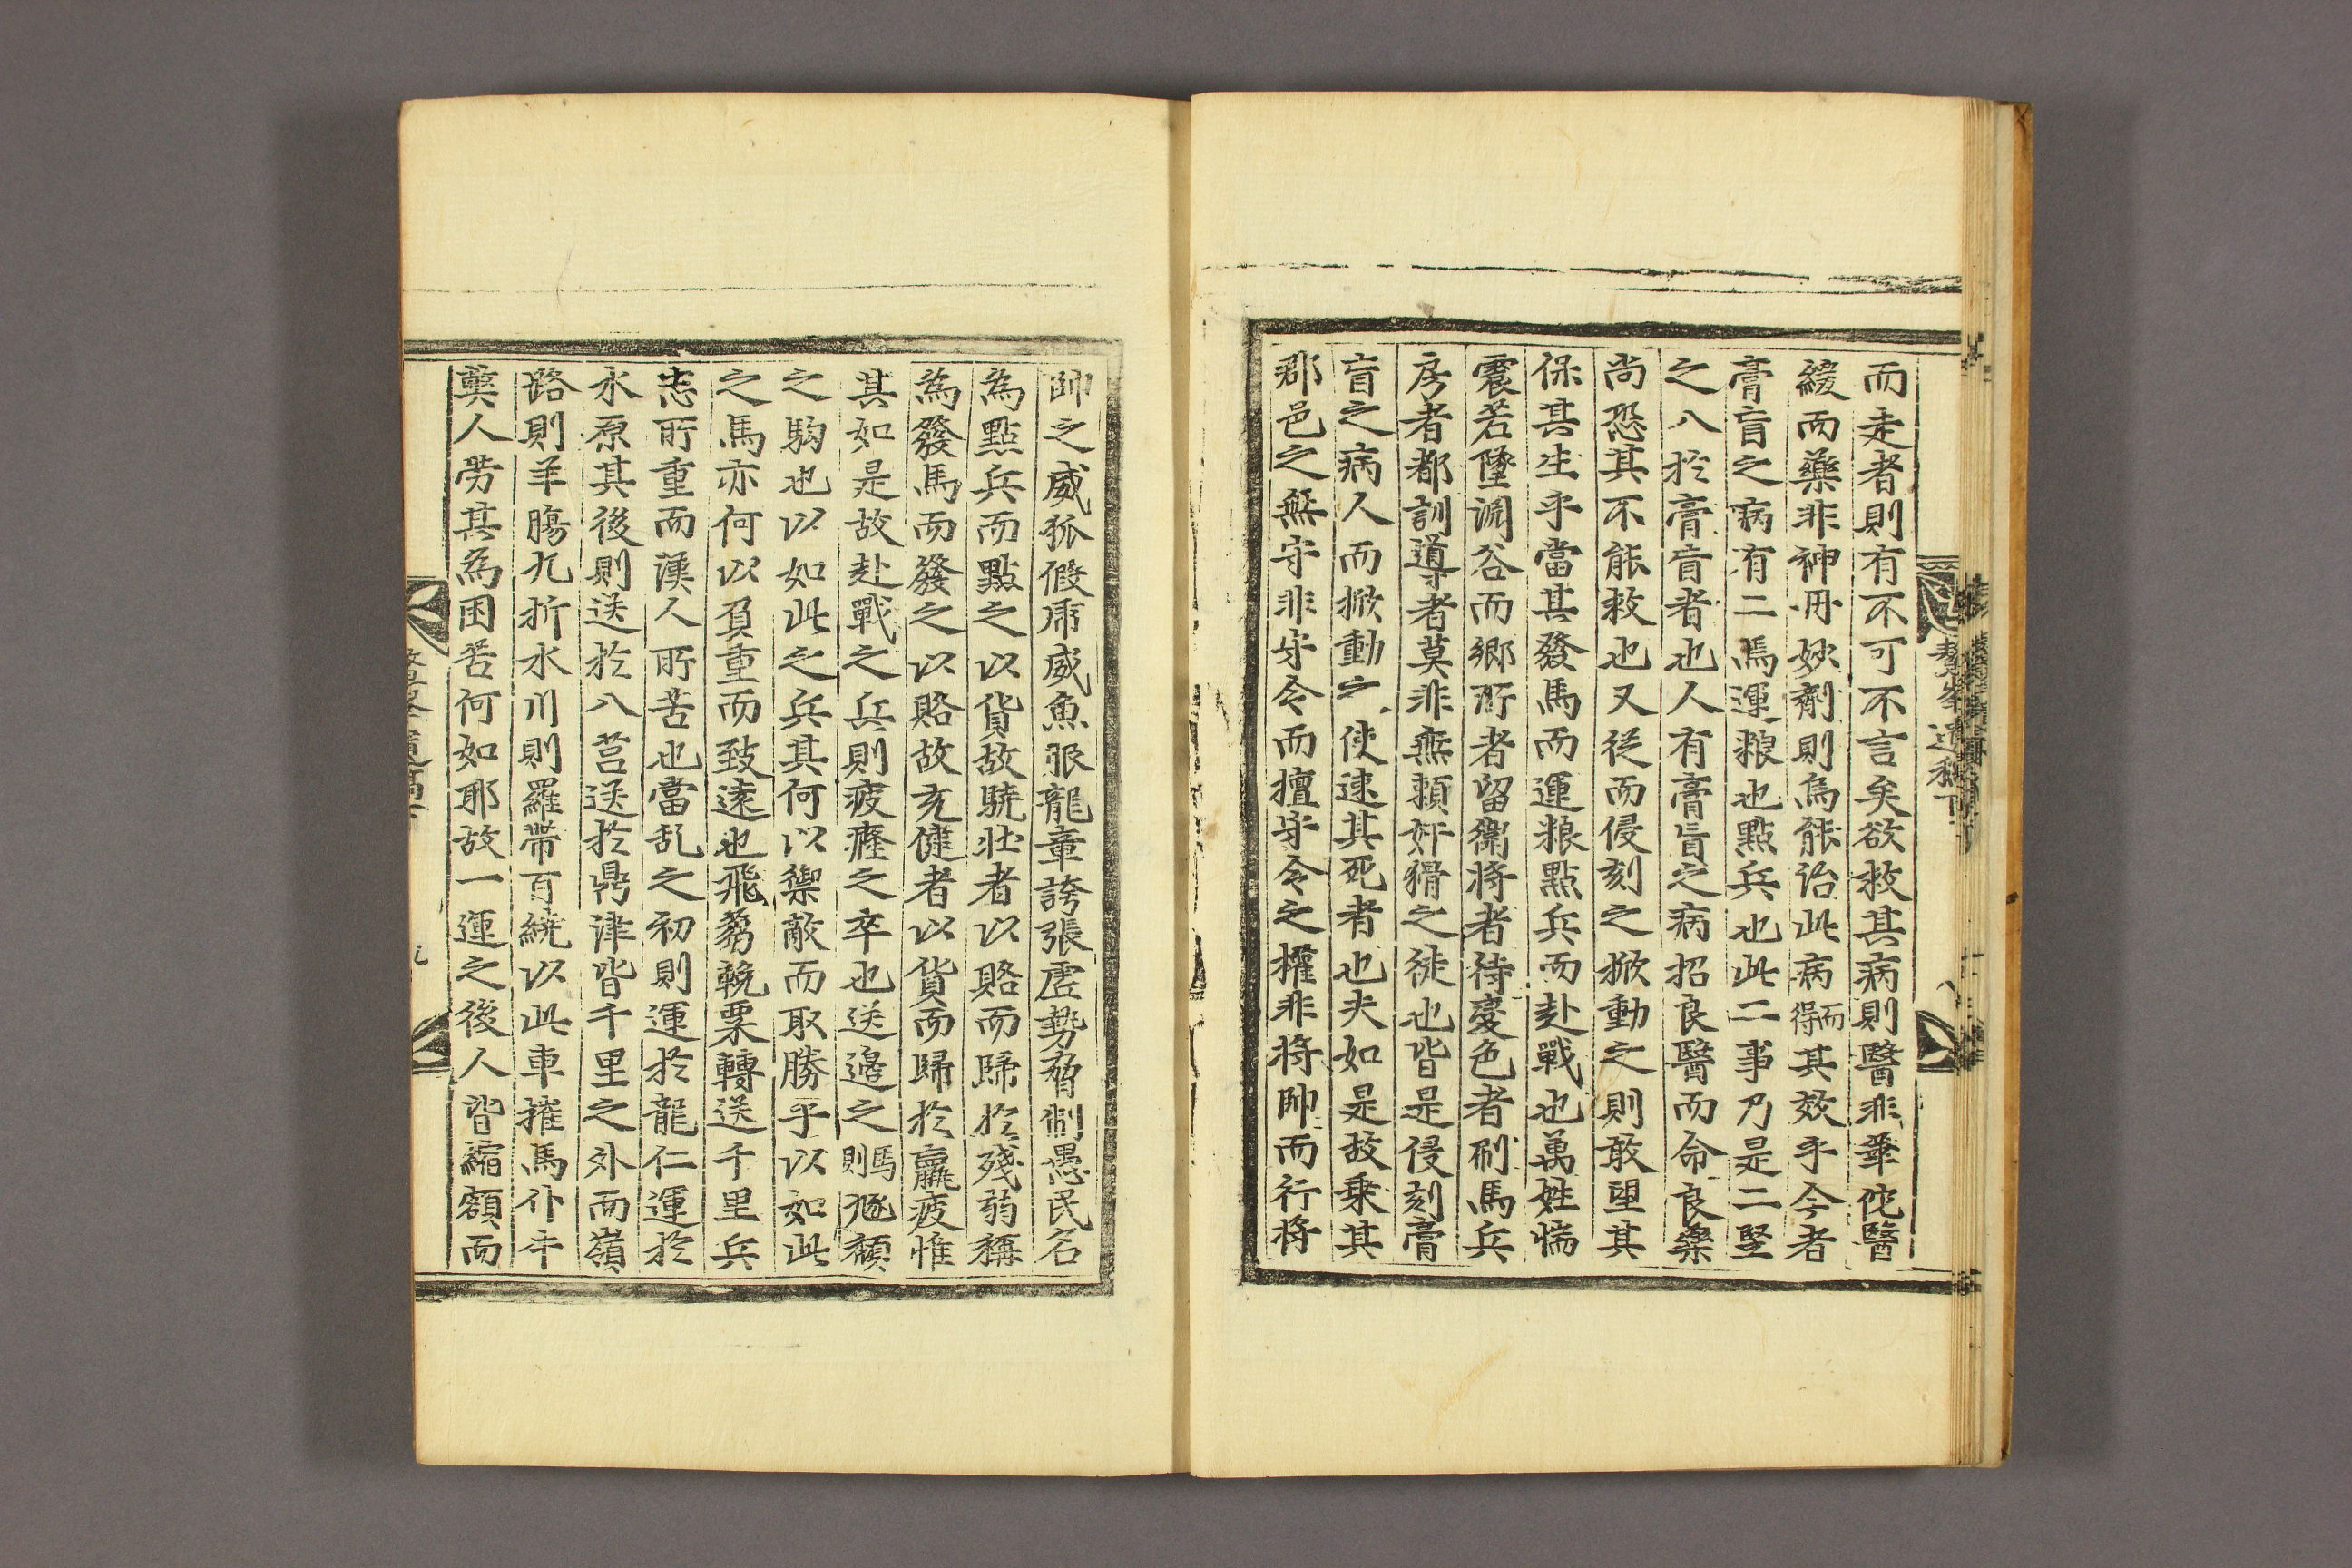 而走者則有不可不言矣欲救其病則醫非華佗醫
緩而藥非神丹妙劑則焉能治此病而得其效乎今者
膏肓之病有二焉運粮也點兵也此二事乃是二竪
之入於膏肓者也人有膏肓之病招良醫而命良藥
尚恐其不能救也又從而侵刻之掀動之則敢望其
保其生乎當其發馬而運粮點兵而赴戰也萬姓惴
震若墮淵谷而鄉所者留衛將者待變色者刷馬兵
房者都訓導者莫非無賴奸猾之徒也皆是侵刻膏
肓之病人而掀動之使速其死者也夫如是故乘其
郡邑之無守非守令而擅守令之權非將帥而行將
帥之威狐假虎威魚服龍章誇張虛勢脅制愚民名
為點兵而點之以貨故驍壯者以賂而歸於殘弱稱
為發馬而發之以賂故充健者以貨而歸於羸疲惟
其如是故赴戰之兵則疲癃之卒也送邊之馬則㢠頹
之駒也以如此之兵其何以禦敵而取勝乎以如此
之馬亦何以負重而致遠也飛芻輓粟轉送千里兵
志所重而漢人所苦也當乱之初則運於龍仁運於
水原其後則送於八莒送於鼎津皆千里之外而嶺
路則羊腸九折水川則羅帶百繞以此車摧馬仆牛
斃人勞其為困苦何如耶故一運之後人皆縮額而
鰲峯遺稿下